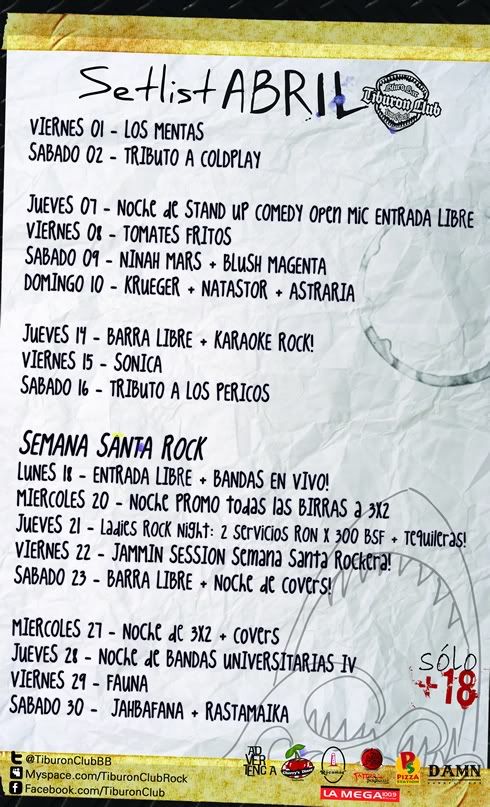 Setlist ABRIL
Tiburon Club
VIERNES 01 - LOS MENTAS
SABADO 02 - TRIBUTO A COLDPLAY
JUEVES 07 - NOCHE de STAND UP COMEDY OPEN MIC ENTRADA LIBRE
VIERNES 08 - TOMATES FRITOS
SABADO 09 - NINAH MARS + BLUSH MAGENTA
DOMINGO 10 - KRUEGER + NATASTOR + ASTRARIA
JUEVES 14 - BARRA LIBRE + KARAOKE ROCK!
VIERNES 15 - SONICA
SABADO 16 - TRIBUTO A LOS PERICOS
SEMANA SANTA ROCK
LUNES 18 - ENTRADA LIBRE + BANDAS EN VIVO!
MIERCOLES 20 - NOCHE PROMO todas las BIRRAS a 3X2
JUEVES 21 - Ladies ROCK Night: 2 Servicios RON X 300 BSF + Tequileras!
VIERNES 22 - JAMMIN SESSION Semana Santa Rockera!
SABADO 23 - BARRA LIBRE + Noche de covers!
MIERCOLES 27 - NOCHE de 3X2 + covers
JUEVES 28 - NOCHE de BANDAS UNIVERSITARIAS IV
VIERNES 29 - FAUNA
SABADO 30 - JAHBAFANA + RASTAMAIKA
SÓLO
+18
@TiburonClubBB
Myspace.com/TiburonClubRock
Facebook.com/TiburonClub
AD
VER
TENCA
PIZZA
DAMN
LA MEGA